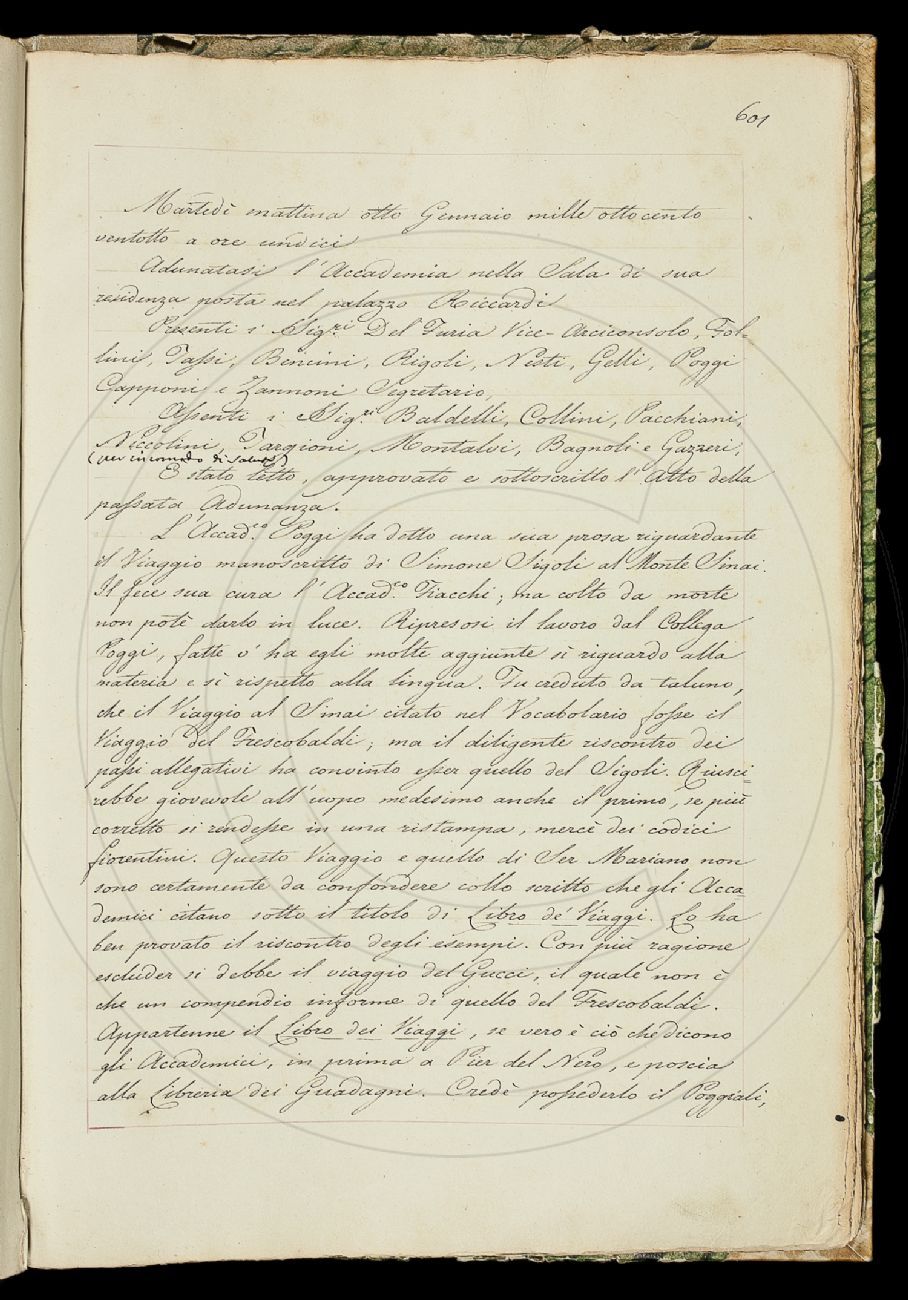 601
Martedì mattina otto Gennaio mille ottocento
ventotto a ore undici
Adunatasi l'Accademia nella Sala di sua
residenza posta nel palazzo Riccardi
Presenti i Sig.ri Del Furia Vice-Arciconsolo, Fol-
lini, Tassi, Bencini, Rigoli, Nesti, Gelli, Poggi
Capponi e Zannoni Segretario,
Assenti i Sig.ri Baldelli, Collini, Pacchiani,
Niccolini, Targioni, Montalvi, Bagnoli e Gazzeri,
(per incomodo di salute)
È stato letto, approvato e sottoscritto l'Atto della
passata Adunanza.
L'Accad.co Poggi ha detto una sua prosa riguardante
il Viaggio manoscritto di Simone Sigoli al Monte Sinai.
Il fece sua cura l'Accad.co Fiacchi; ma colto da morte
non potè darlo in luce. Ripresosi il lavoro dal Collega
Poggi, fatte v'ha egli molte aggiunte sì riguardo alla
materia e sì rispetto alla lingua. Fu creduto da taluno,
che il Viaggio al Sinai citato nel Vocabolario fosse il
Viaggio del Frescobaldi; ma il diligente riscontro dei
passi allegativi ha convinto esser quello del Sigoli. Riusci-
rebbe giovevole all'uopo medesimo anche il primo, se più
corretto si rendesse in una ristampa, mercè dei codici
fiorentini. Questo Viaggio e quello di Ser Mariano non
sono certamente da confondere collo scritto che gli Acca
demici citano sotto il titolo di Libro de' Viaggi. Lo ha
ben provato il riscontro degli esempi. Con più ragione
escluder si debbe il viaggio del Gucci, il quale non è
che un compendio informe di quello del Frescobaldi.
Appartenne il Libro dei Viaggi, se vero è ciò che dicono
gli Accademici, in prima a Pier del Nero, e poscia
alla Libreria dei Guadagni. Credè possederlo il Poggiali,